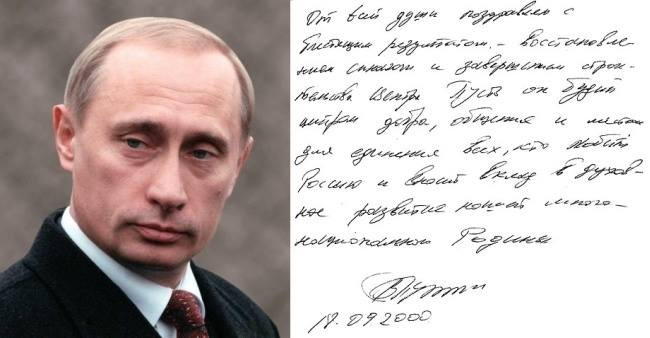 От всей души поздравляю с
блестящим результатом – восстановле-
нием синагоги и завершением строи-
тельства Центра. Пусть он будет
центром добра, общения и местом
для единения всех, кто любит
Россию и вносит вклад в духов-
ное развитие нашей много-
национальной Родины
В Путин
18.09 2000